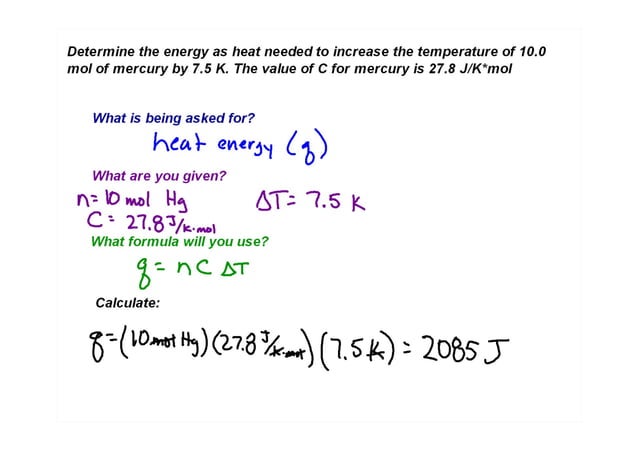 Determine the energy as heat needed to increase the temperature of 10.0
mol of mercury by 7.5 K. The value of C for mercury is 27.8 J/K*mol
What is being asked for?
heat energy (q)
What are you given?
n= 10 mol Hg ΔT= 7.5 K
C= 27.8 J/K·mol
What formula will you use?
q = n C ΔT
Calculate:
q=(10 mol Hg)(27.8 J/K·mol)(7.5 K) = 2085 J